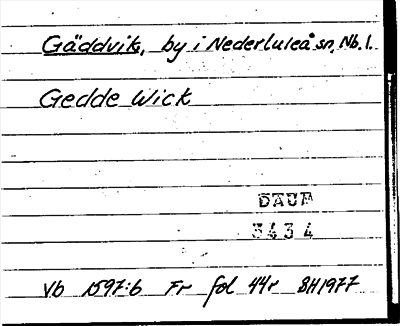 Gäddvik, by i Nederluleå sn, Nb. l.
Gedde Wick
DAUM
3434
Vb 1597:6 Fr fol 44r SH1977